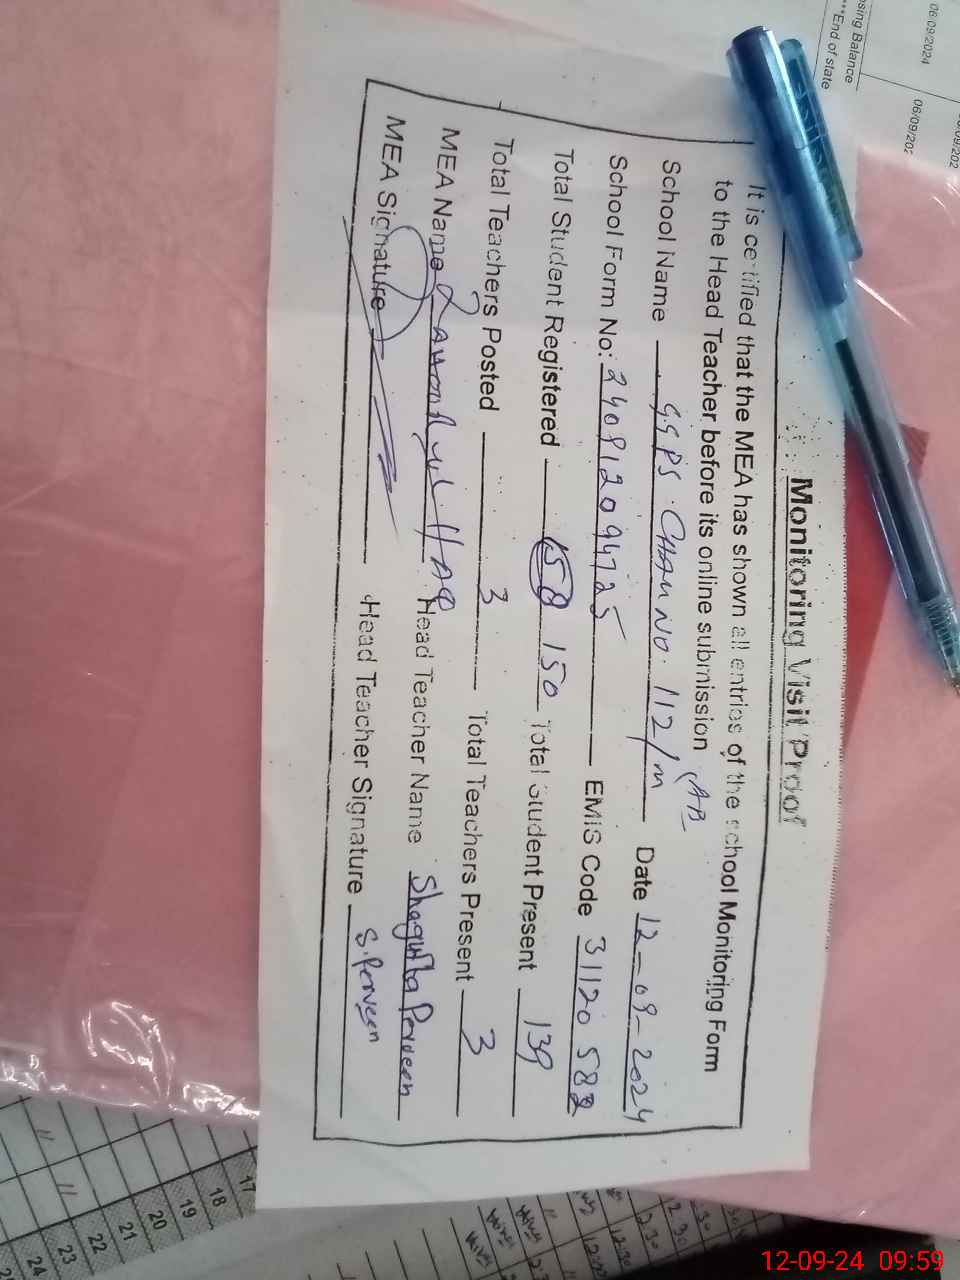 Monitoring Visit Proof
It is certified that the MEA has shown all entries of the school Monitoring Form
to the Head Teacher before its online submission
School Name GGPS CHAK NO. 112/m Date 12-09-2024
School Form No: EMIS Code 31120582
Total Student Registered 158 150 Total Student Present 139
Total Teachers Posted 3 Total Teachers Present 3
MEA Name HAQ Head Teacher Name Shagufta Perveen
MEA Signature Head Teacher Signature S.Perveen
osing Balance
***End of state
06/09/2024
06/09/202
17
18
19
20
21
22
23
24
12-09-24 09:59